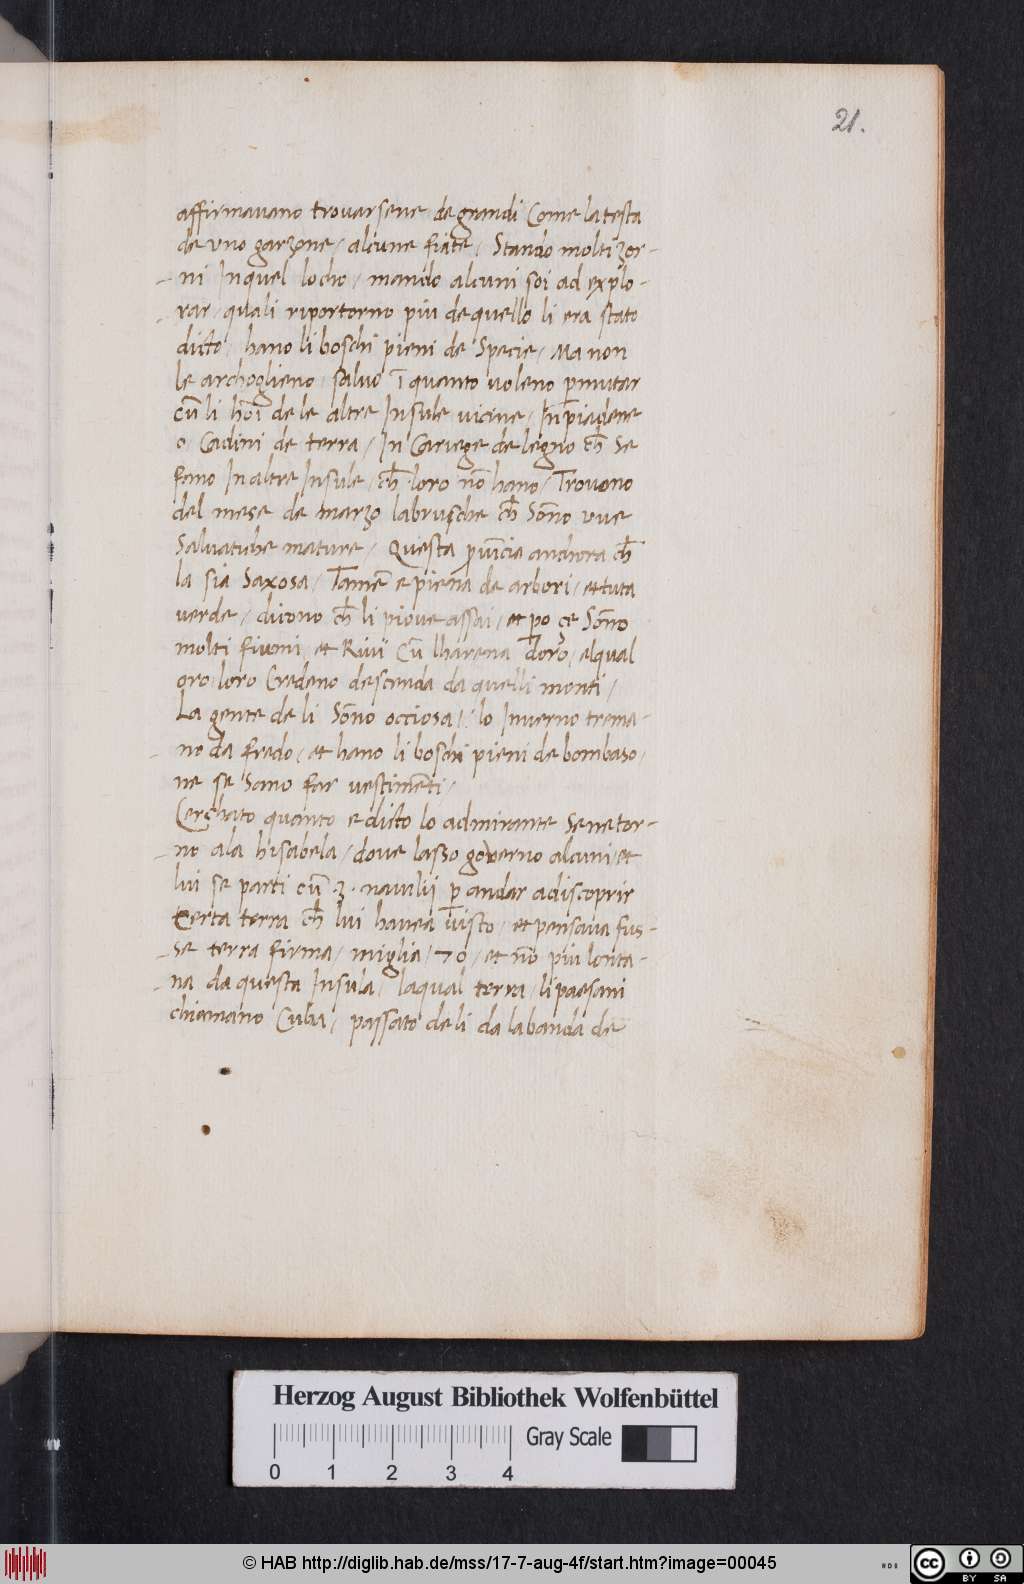 21.
affirmauano trouarsene de grandi Come la testa
de vno garzone / alcune fiate / Stando molti zor-
ni In quel locho / mando alcuni soi ad explo-
rar / quali riportorno piu de quello li era stato
dicto / hano li boschi pieni de Specie / Ma non
le archoglieno / salvo ī quanto voleno p̱mutar
cū li hoī de le altre Insule vicine / In piadene
o Cadini de terra / In Cariege de legno ch̄ se
fano In altre Insule / ch̄ loro nō hano / Trouono
del mese de marzo labrusche ch̄ Sōno vue
Saluatiche mature / Questa provīcia anchora ch̄
la sia Saxosa / Tamē e piena de arbori / et tuta
verde / dicono ch̄ li piove assai / et p̱o çe Sōno
molti fiumi et Riuii Cū lharena doro / elqual
oro loro Credeno descenda da quelli monti /
La gente de li Sōno occiosa / lo Inuerno trema-
no da fredo / et hano li boschi pieni de bombaso /
ne se Sano far vestimēti /
Cerchato quanto e dicto lo admirante Se ne tor-
no ala hisabela / dove lasso goberno alcuni / et
lui se parti cū .3. nauilii p̱ andar a discoprir
certa terra ch̄ lui hauea visto / et pensaua fus-
se terra firma / miglia / 70 / et nō piu lonta-
na da questa Insula / laqual terra / li paesani
chiamano Cuba / passato de li da la banda de
Herzog August Bibliothek Wolfenbüttel
0 1 2 3 4
Gray Scale
© HAB http://diglib.hab.de/mss/17-7-aug-4f/start.htm?image=00045
cc BY SA